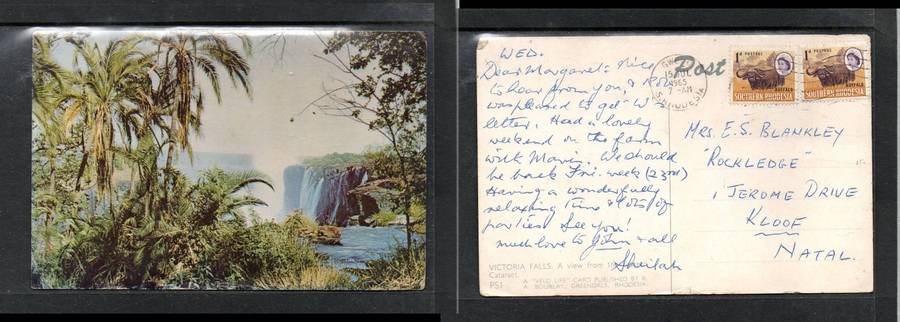 WED.
Dear Margaret: Nice
to hear from you, &
was pleased to get
letter. Had a lovely
weekend on the farm
with Mavis. We should
be back Fri. week (23rd)
Having a wonderfully
relaxing time & lots of
parties. See you!
much love to John & all
Sheilah
VICTORIA FALLS. A view from
Cataract.
PS1
A "VELD LIFE" CARD PUBLISHED BY
A. GREENDALE, RHODESIA.
Post
1965
7 - AM
S. RHODESIA
1d POSTAGE
SOUTHERN RHODESIA
1d POSTAGE
SOUTHERN RHODESIA
MRS. E.S. BLANKLEY
"ROCKLEDGE"
1 JEROME DRIVE
KLOOF
NATAL.